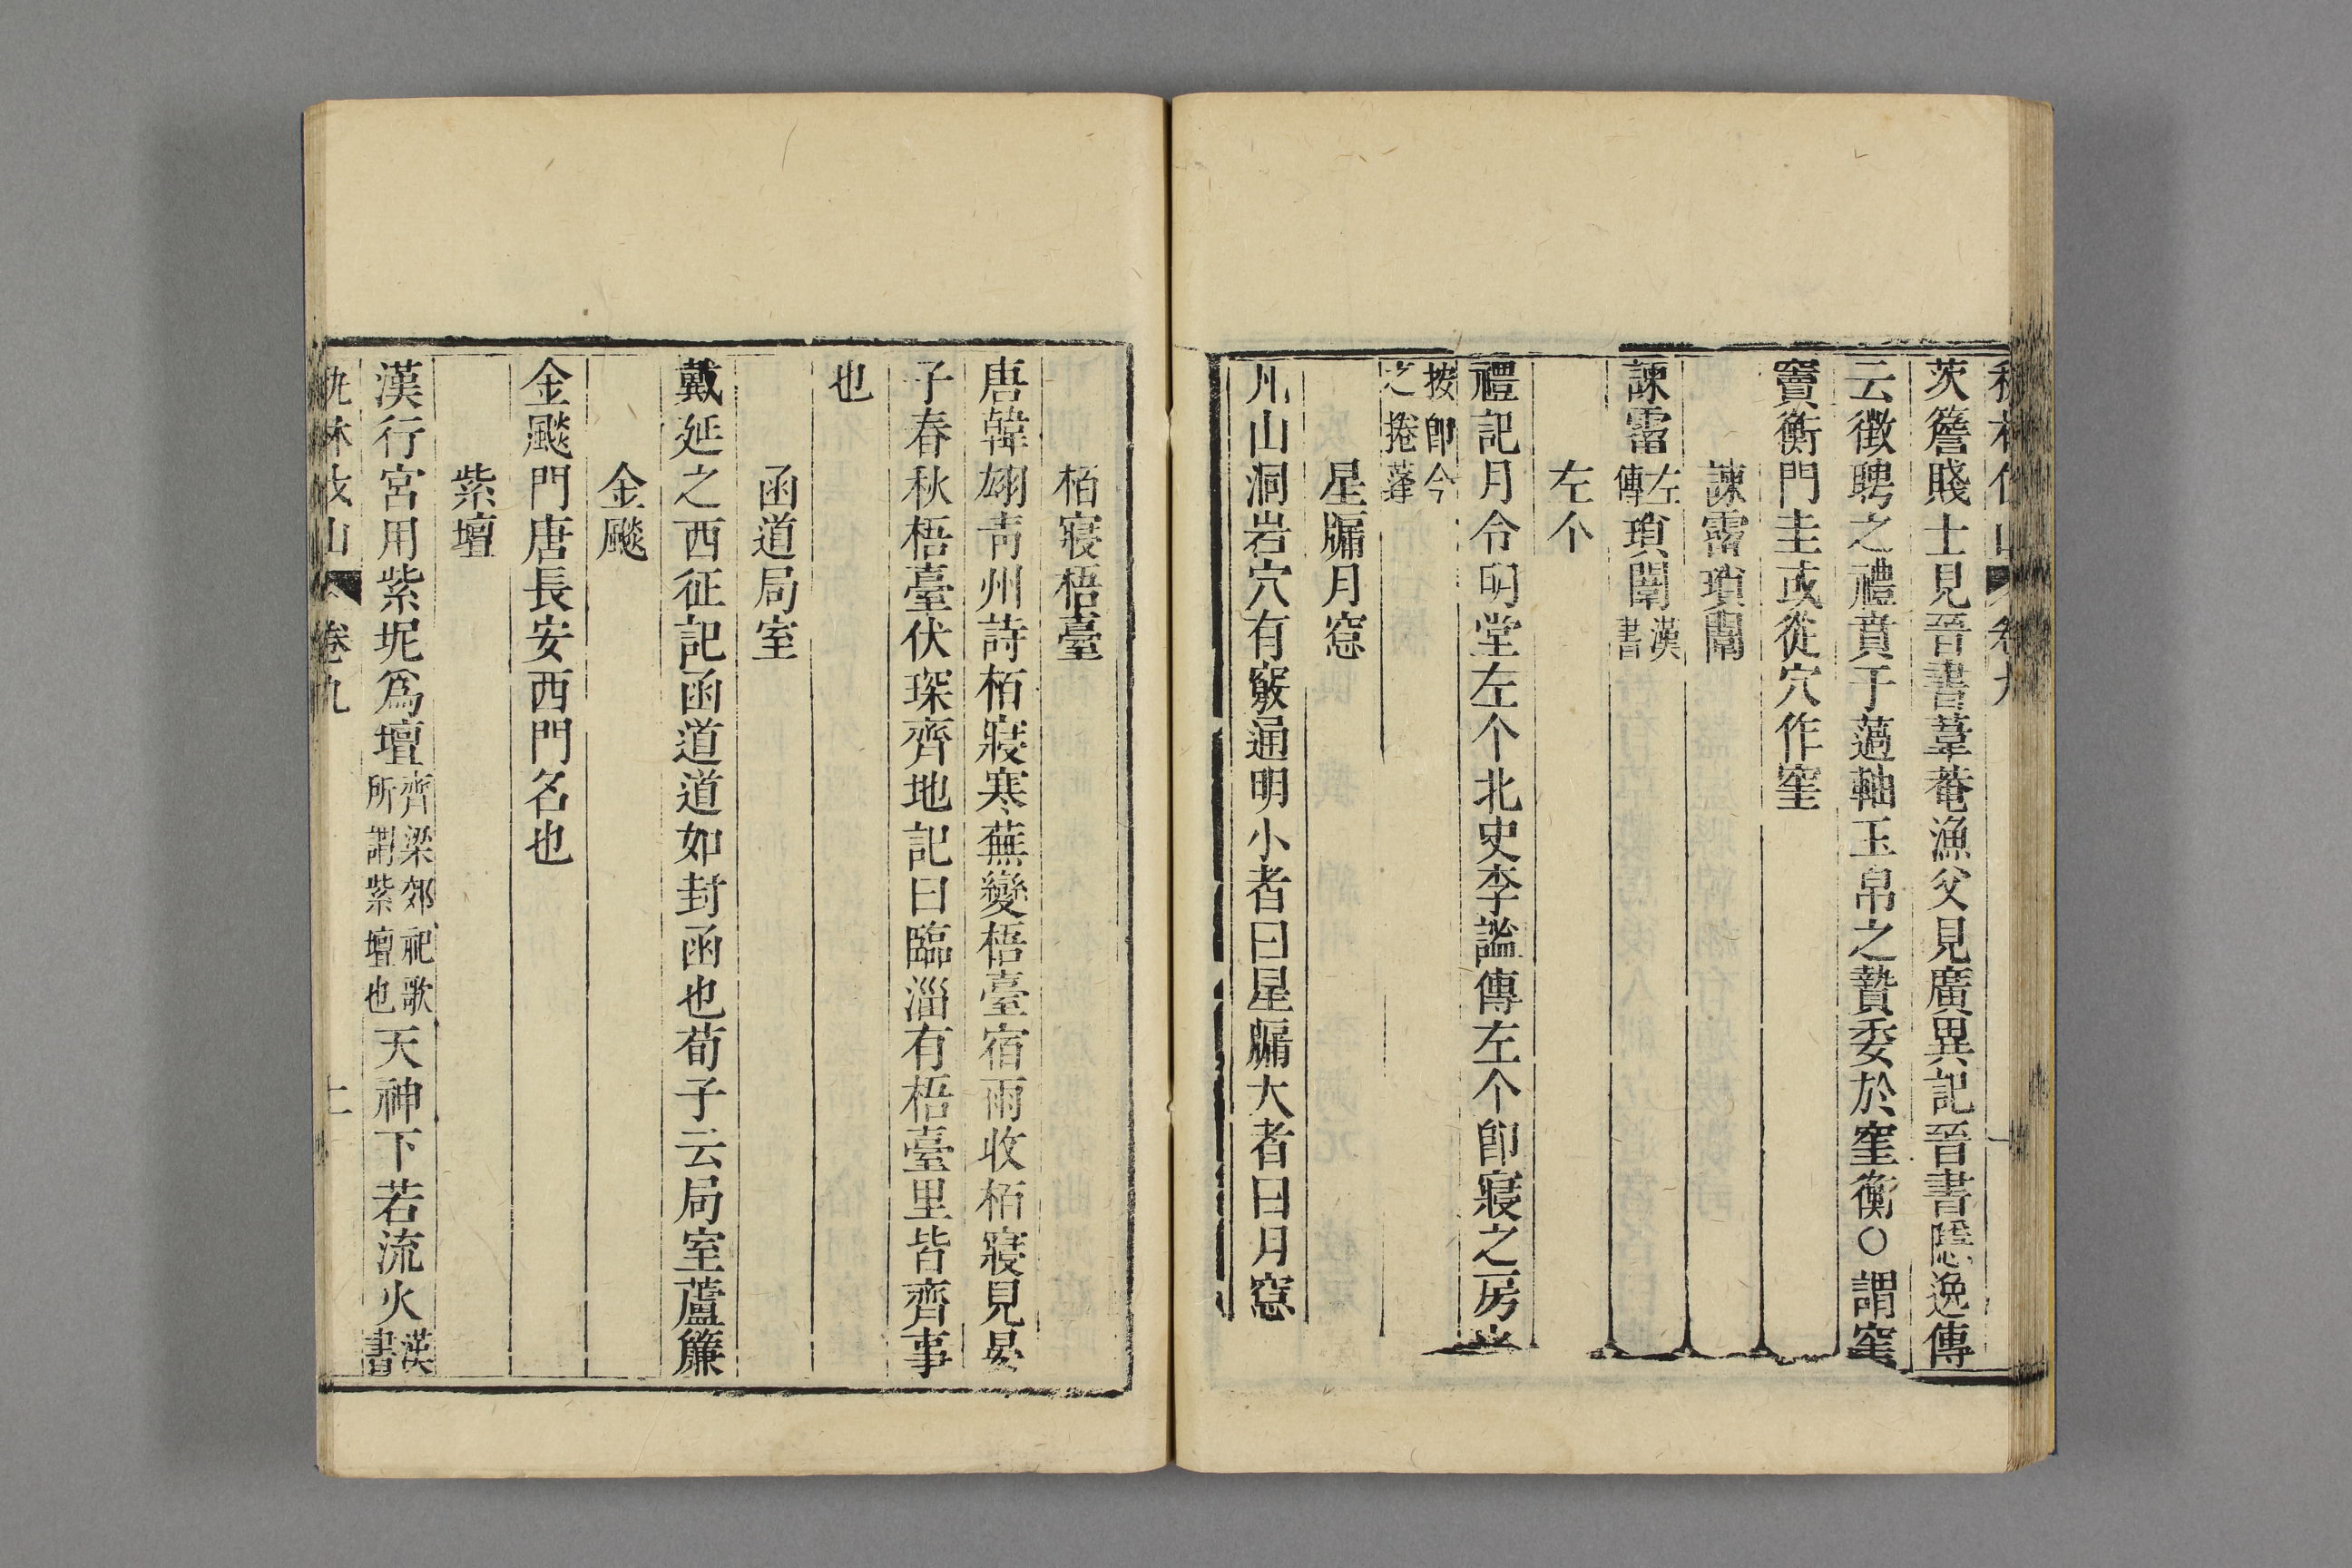 茨簷賤士見晉書葦菴漁父見廣異記晉書隱逸傳
云徵聘之禮賁于薖軸玉帛之贄委於窐衡○謂窐
竇衡門圭或從穴作窐
諫霤瑣闈
諫霤左傳瑣闈漢書
左个
禮記月令明堂左个北史李謐傳左个卽寢之房也
按卽今之捲蓬
星牖月窓
凡山洞岩穴有竅通明小者曰星牖大者曰月窓
栢寢梧臺
唐韓翃靑州詩栢寢寒蕪變梧臺宿雨收栢寢見晏
子春秋梧臺伏琛齊地記曰臨淄有梧臺里皆齊事
也
函道局室
戴延之西征記函道道如封函也荀子云局室蘆簾
金飈
金飈門唐長安西門名也
紫壇
漢行宮用紫坭爲壇齊梁郊祀歌所謂紫壇也天神下若流火漢書
卷九